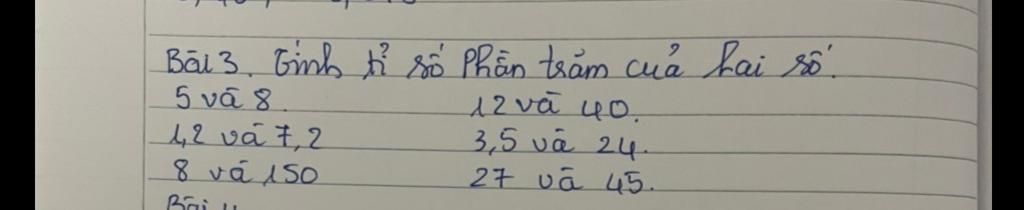 Bài 3. Tính tỉ số phần trăm của hai số.
5 và 8. 12 và 40.
1,2 và 7,2 3,5 và 24.
8 và 150 27 và 45.